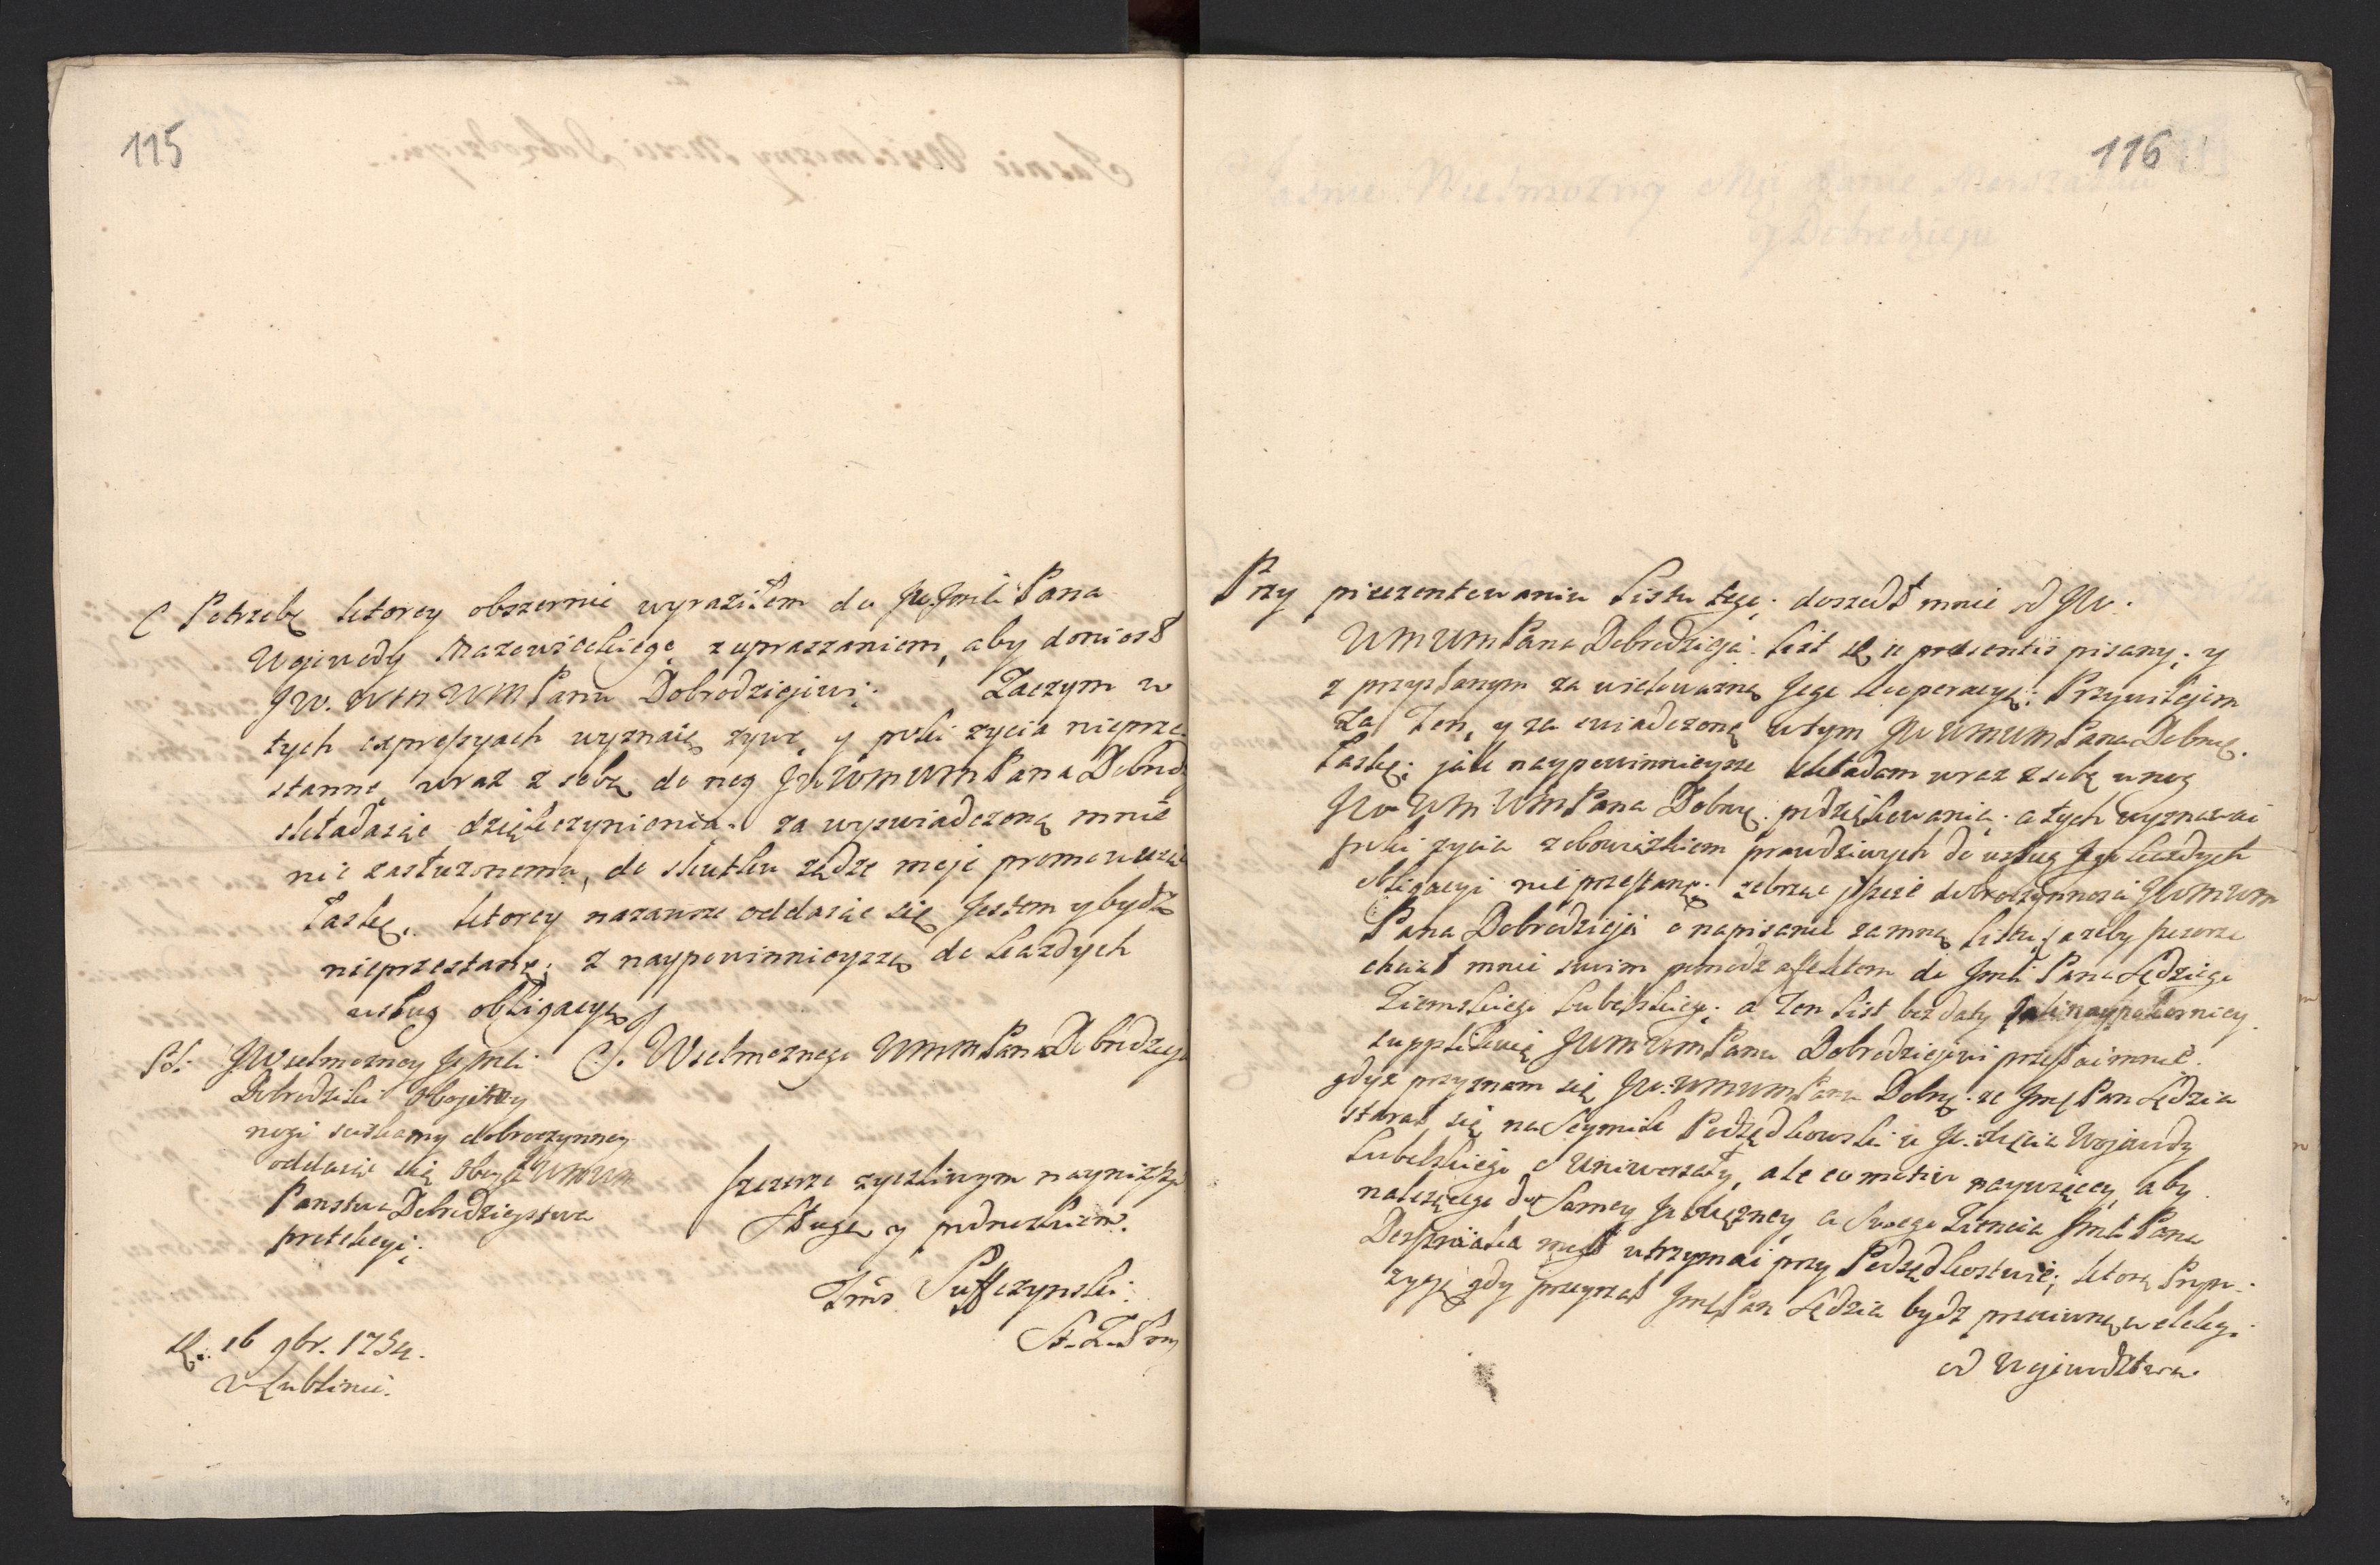 115
C Potrzebę ktorey obszernie wyraziłem do JW. Jmci Pana
Wojewody Mazowieckiego z upraszaniem, aby doniosł
JW. WM WM Panu Dobrodziejowi. Zaczym w
tych expressyach wyznaię zywe, y poki zycia nieprze-
stanne wraz z sobą do nog JW WM WM Pana Dobrodz
składasąc dziękczynienia. za wyswiadczoną mnie
nie zasłuzonemu, do skutku ządze moje promowuiące
Łaskę, ktorey nazawsze oddaiąc się Jestem y bydź
nieprzestanę; z naypowinnieyszą do kazdych
usług obligacyą
J. Wielmoznego WMM Pana Dobrodzieja
PS: JWielmozney Jejmci
Dobrodziki Obojetney
nogi sciskamy dobroczynney
oddaiąc się Obojga WMWM
Panstwa Dobrodziejstwa
protekcyi;
szczerze zyczliwym naynizszym
Sługą y podnozkiem.
Suffczynski.
S. Z. Łom
d. 16 9br. 1754.
w Lublinie.
116
Przy prezentowaniu Listu tego. doszedł mnie od JW.
WMWM Pana Dobrodzieja. list d. 11 praesentis pisany, y
z przysłanym za wielowazną Jego kooperacyą: Przywilejem
Za Ten, y za swiadczoną w tym JW WMWM Pana Dobrodz.
Łaskę; jak naypowinnieysze składam wraz z sobą u nog
JW WM WM Pana Dobrodz. podziękowania. a tych wyznawai
poki zycia z obowiązkiem prawdziwych do usług Jego kazdych
obligacyi nie przestanę. zebrząc jescze dobroczynnosci JWMWM
Pana Dobrodzieja o napisanie zamną listu, azeby szczerze
chciał mnie swim pomodz affektem do Jmci Pana Sędziego
Ziemskiego Lubelskiego; a Ten list bez daty jak naypokorniey
supplikuię JWMWM Panu Dobrodziejowi przesłai mnie.
gdyz przyznam się JW. WMWM Panu Dobrodz. ze Jmć Pan Sędzia
starał się na Seymik Podsędkowski u JO. Xięcia Wojewody
Lubelskiego o Uniwersały, ale ex motiv naywięcey, aby
nalezącego do Samey JO Xięzney, a Swego Ziencia Jmci Pana
mogł utrzymai przy Podsędkostwie; ktorą Propo-
zycyę gdy przeyrzał Jmć Pan Sędzia bydź przeciwną w elekcyi
od Wojewodztwa.